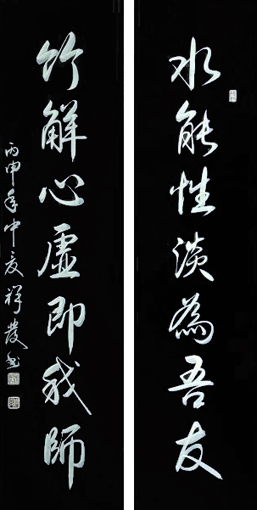 水能性淡為吾友
竹解心虛即我師
丙申年中夏祥發書